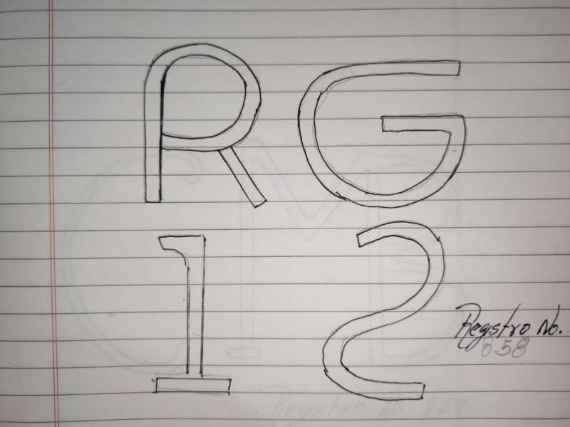 RG
12
Registro No.
058